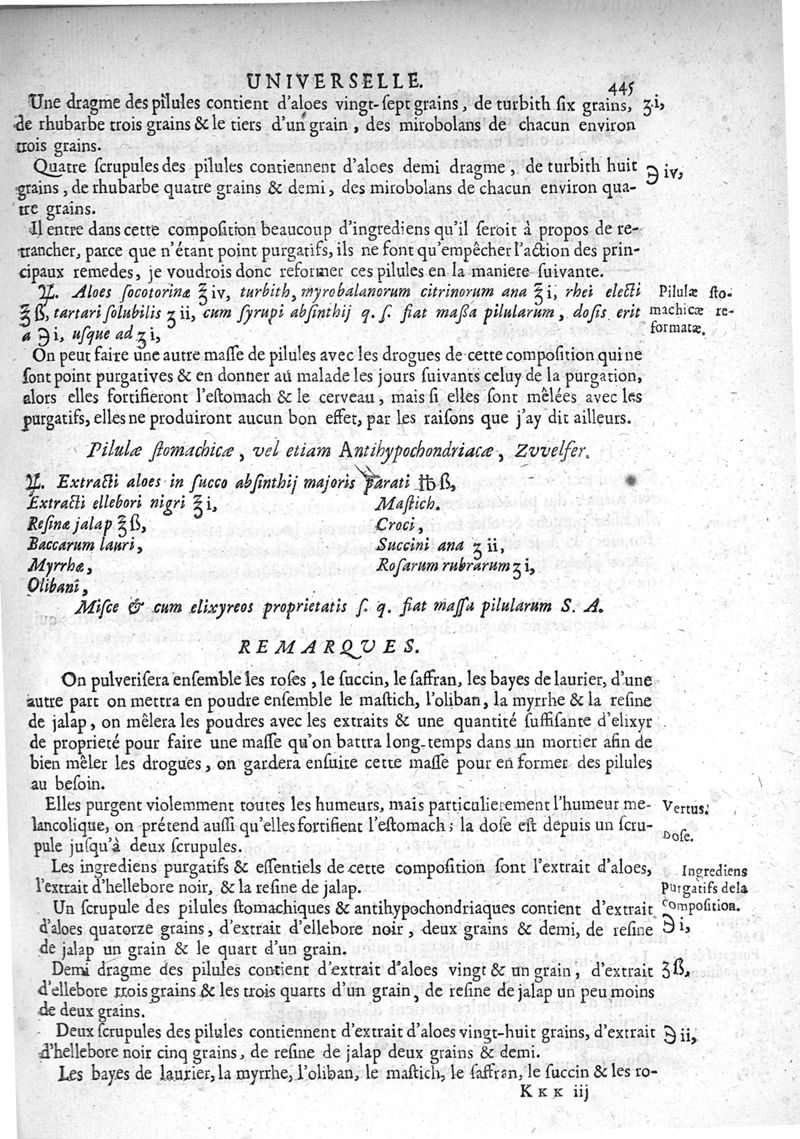 UNIVERSELLE. 445
Une dragme des pilules contient d'aloes vingt-sept grains, de turbith six grains, ʒi,
de rhubarbe trois grains & le tiers d'un grain, des mirobolans de chacun environ
trois grains.
Quatre scrupules des pilules contiennent d'aloes demi dragme, de turbith huit ℈iv,
grains, de rhubarbe quatre grains & demi, des mirobolans de chacun environ qua-
tre grains.
Il entre dans cette composition beaucoup d'ingrediens qu'il seroit à propos de re-
trancher, parce que n'étant point purgatifs, ils ne font qu'empêcher l'action des prin-
cipaux remedes, je voudrois donc reformer ces pilules en la maniere suivante.
♃. Aloes socotorinæ ℥iv, turbith, myrobalanorum citrinorum ana ℥i, rhei electi Pilulæ sto-
℥ß, tartari solubilis ʒii, cum syrupi absinthij q. s. fiat maßa pilularum, dosis erit machicæ re-
à ℈i, usque ad ʒi, formatæ.
On peut faire une autre masse de pilules avec les drogues de cette composition qui ne
sont point purgatives & en donner au malade les jours suivants celuy de la purgation,
alors elles fortifieront l'estomach & le cerveau, mais si elles sont mêlées avec les
purgatifs, elles ne produiront aucun bon effet, par les raisons que j'ay dit ailleurs.
Pilulæ stomachicæ, vel etiam Antihypochondriacæ, Zvvelfer.
♃. Extracti aloes in succo absinthij majoris parati ℔ß,
Extracti ellebori nigri ℥i, Mastich.
Resinæ jalap ℥ß, Croci,
Baccarum lauri, Succini ana ʒii,
Myrrhæ, Rosarum rubrarum ʒi,
Olibani,
Misce & cum elixyreos proprietatis s. q. fiat massa pilularum S. A.
REMARQUES.
On pulverisera ensemble les roses, le succin, le saffran, les bayes de laurier, d'une
autre part on mettra en poudre ensemble le mastich, l'oliban, la myrrhe & la resine
de jalap, on mêlera les poudres avec les extraits & une quantité suffisante d'elixyr
de proprieté pour faire une masse qu'on battra long-temps dans un mortier afin de
bien mêler les drogues, on gardera ensuite cette masse pour en former des pilules
au besoin.
Elles purgent violemment toutes les humeurs, mais particulierement l'humeur me- Vertus.
lancolique, on prétend aussi qu'elles fortifient l'estomach; la dose est depuis un scru- Dose.
pule jusqu'à deux scrupules.
Les ingrediens purgatifs & essentiels de cette composition sont l'extrait d'aloes, Ingrediens
l'extrait d'hellebore noir, & la resine de jalap. Purgatifs de la
Un scrupule des pilules stomachiques & antihypochondriaques contient d'extrait composition.
d'aloes quatorze grains, d'extrait d'ellebore noir, deux grains & demi, de resine ℈i,
de jalap un grain & le quart d'un grain.
Demi dragme des pilules contient d'extrait d'aloes vingt & un grain, d'extrait ʒß,
d'ellebore trois grains & les trois quarts d'un grain, de resine de jalap un peu moins
de deux grains.
Deux scrupules des pilules contiennent d'extrait d'aloes vingt-huit grains, d'extrait ℈ii,
d'hellebore noir cinq grains, de resine de jalap deux grains & demi.
Les bayes de laurier, la myrrhe, l'oliban, le mastich, le saffran, le succin & les ro-
Kkk iij